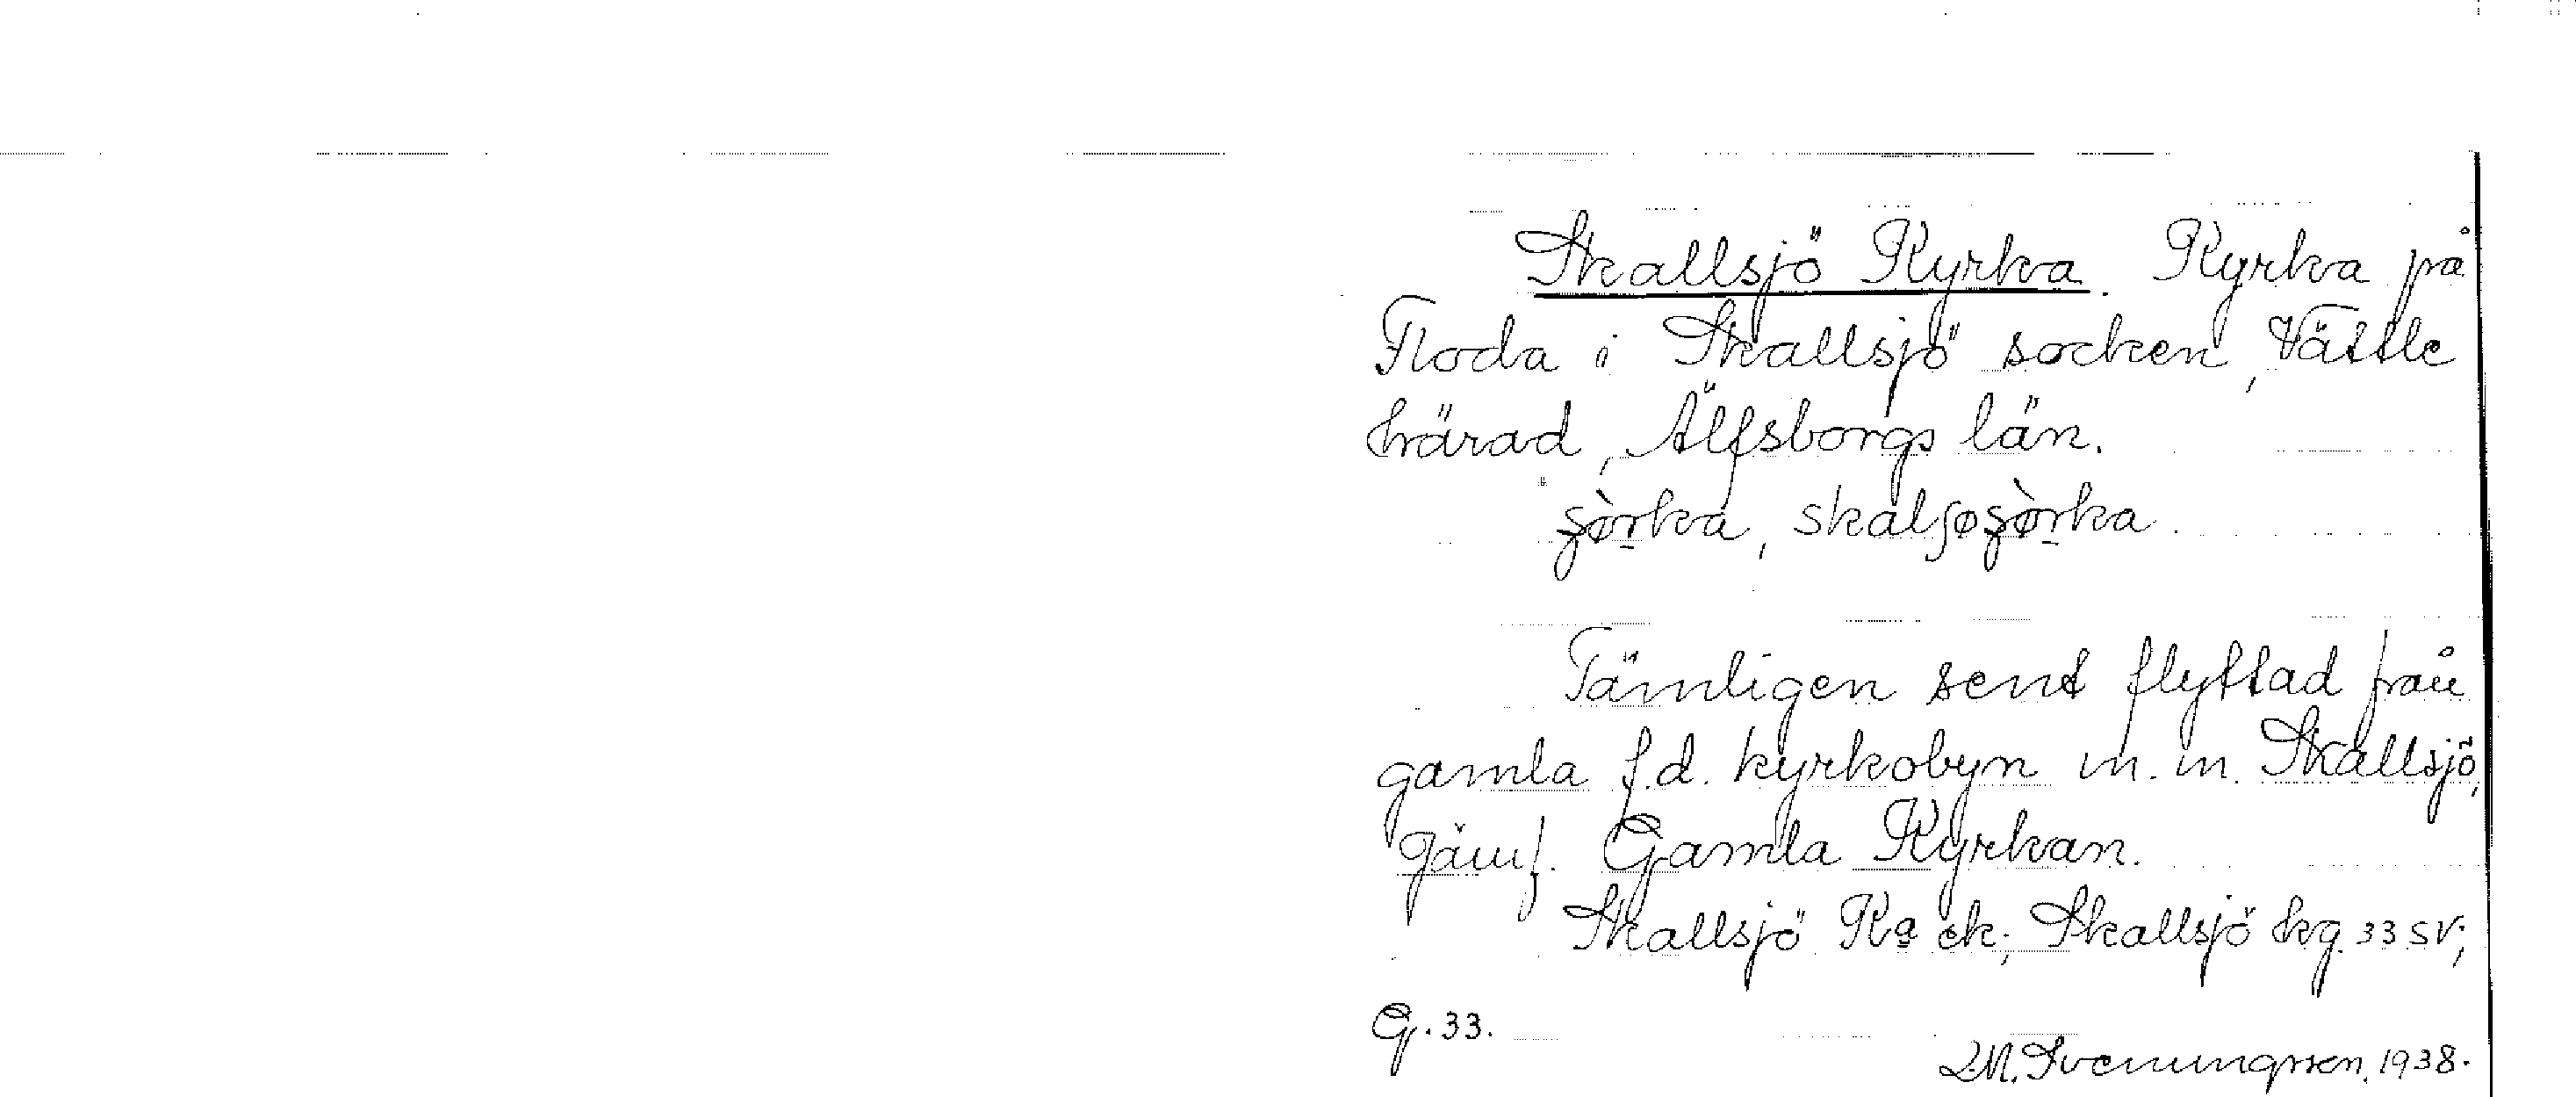 Skallsjö Kyrka. Kyrka på
Floda i Skallsjö socken, Vättle
härad, Älfsborgs län.
şòrka, skalʃøşòrka.
Tämligen sent flyttad från
gamla f.d. kyrkobyn m.m. Skallsjö,
Jämf. Gamla Kyrkan.
Skallsjö Ka ek; Skallsjö hg. 33 SV;
G. 33.
1938.